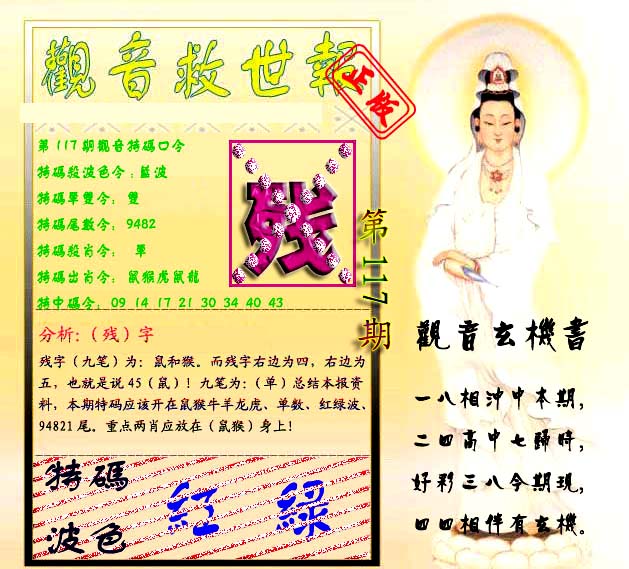 觀音救世報
正版
第117期觀音特碼口令
特碼殺波色令:藍波
特碼單雙令: 雙
特碼尾數令: 9482
特碼殺肖令: 單
特碼出肖令: 鼠猴虎鼠龍
特中碼令: 09 14 17 21 30 34 40 43
残
第117期
分析:(残)字
残字(九笔)为:鼠和猴。而残字右边为四,右边为
五,也就是说45(鼠)!九笔为:(单)总结本报资
料,本期特码应该开在鼠猴牛羊龙虎、单数、红绿波、
94821尾。重点两肖应放在(鼠猴)身上!
特碼
波色
紅 綠
觀音玄機書
一八相沖中本期,
二四高中七歸時,
好彩三八令期現,
四四相伴有玄機。